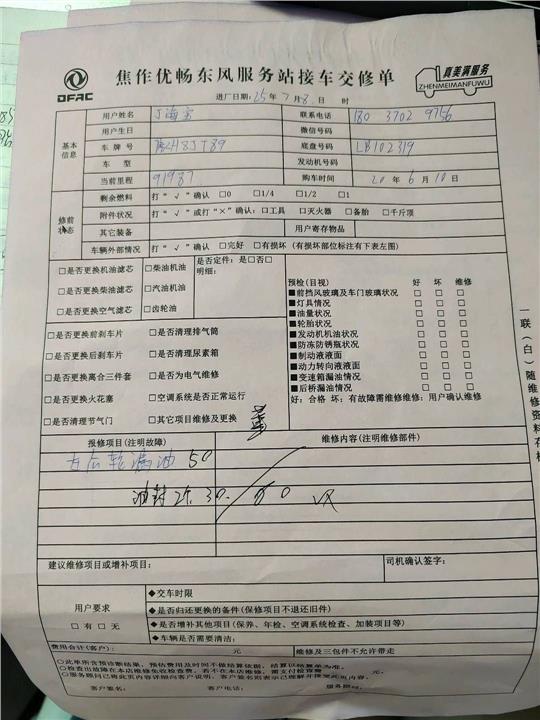 DFAC
焦作优畅东风服务站接车交修单
真美满服务
ZHENMEIMANFUWU
进厂日期：25年7月8日 时
基本信息
用户姓名
联系电话 180 3702 9756
用户生日
微信号码
车牌号
底盘号码 LB102319
车型
发动机号码
当前里程 91987
购车时间 20年6月10日
修前状态
剩余燃料 打“√”确认 □0 □1/4 □1/2 □1
附件状况 打“√”或打“×”确认：□工具 □灭火器 □备胎 □千斤顶
其它装备
用户寄存物品
车辆外部情况 打“√”确认 □完好 □有损坏（有损坏部位标注有下表左图）
□是否更换机油滤芯 □柴油机油
是否定件：是□否□
明细：
□是否更换柴油滤芯 □汽油机油
□是否更换空气滤芯 □齿轮油
□是否更换前刹车片 □是否清理排气筒
□是否更换后刹车片 □是否清理尿素箱
□是否更换离合三件套 □是否为电气维修
□是否更换火花塞 □空调系统是否正常运行
□是否清理节气门 □其它项目维修及更换
预检（目视） 好 坏 维修
■前挡风玻璃及车门玻璃状况 □ □ □
■灯具情况 □ □ □
■油量状况 □ □ □
■轮胎状况 □ □ □
■发动机机油状况 □ □ □
■防冻防锈瓶状况 □ □ □
■制动液液面 □ □ □
■动力转向液液面 □ □ □
■变速箱漏油情况 □ □ □
■后桥漏油情况 □ □ □
好：合格 坏：有故障需维修维修：用户确认维修
一联（白）随维修资料存档
报修项目（注明故障）
维修内容（注明维修部件）
右后轮漏油 50
油封 2个 30. 80
建议维修项目或增补项目：
司机确认签字：
用户要求
□有 □无
◆交车时限
◆是否归还更换的备件（保修项目不退还旧件）
◆是否增补其他项目（保养、年检、空调系统检查、加装项目等）
◆车辆是否需要清洁：
费用合计（客户）： 元
维修及三包件不允许带走
○此单所含预诊断结果，预估费用及时间不做结算依据，结算以结算单为准。
○服务顾问已将此页内容详细向客户说明，客户签名则表示已理解并接受此页内容。
客户签名： 客户电话： 服务顾问：